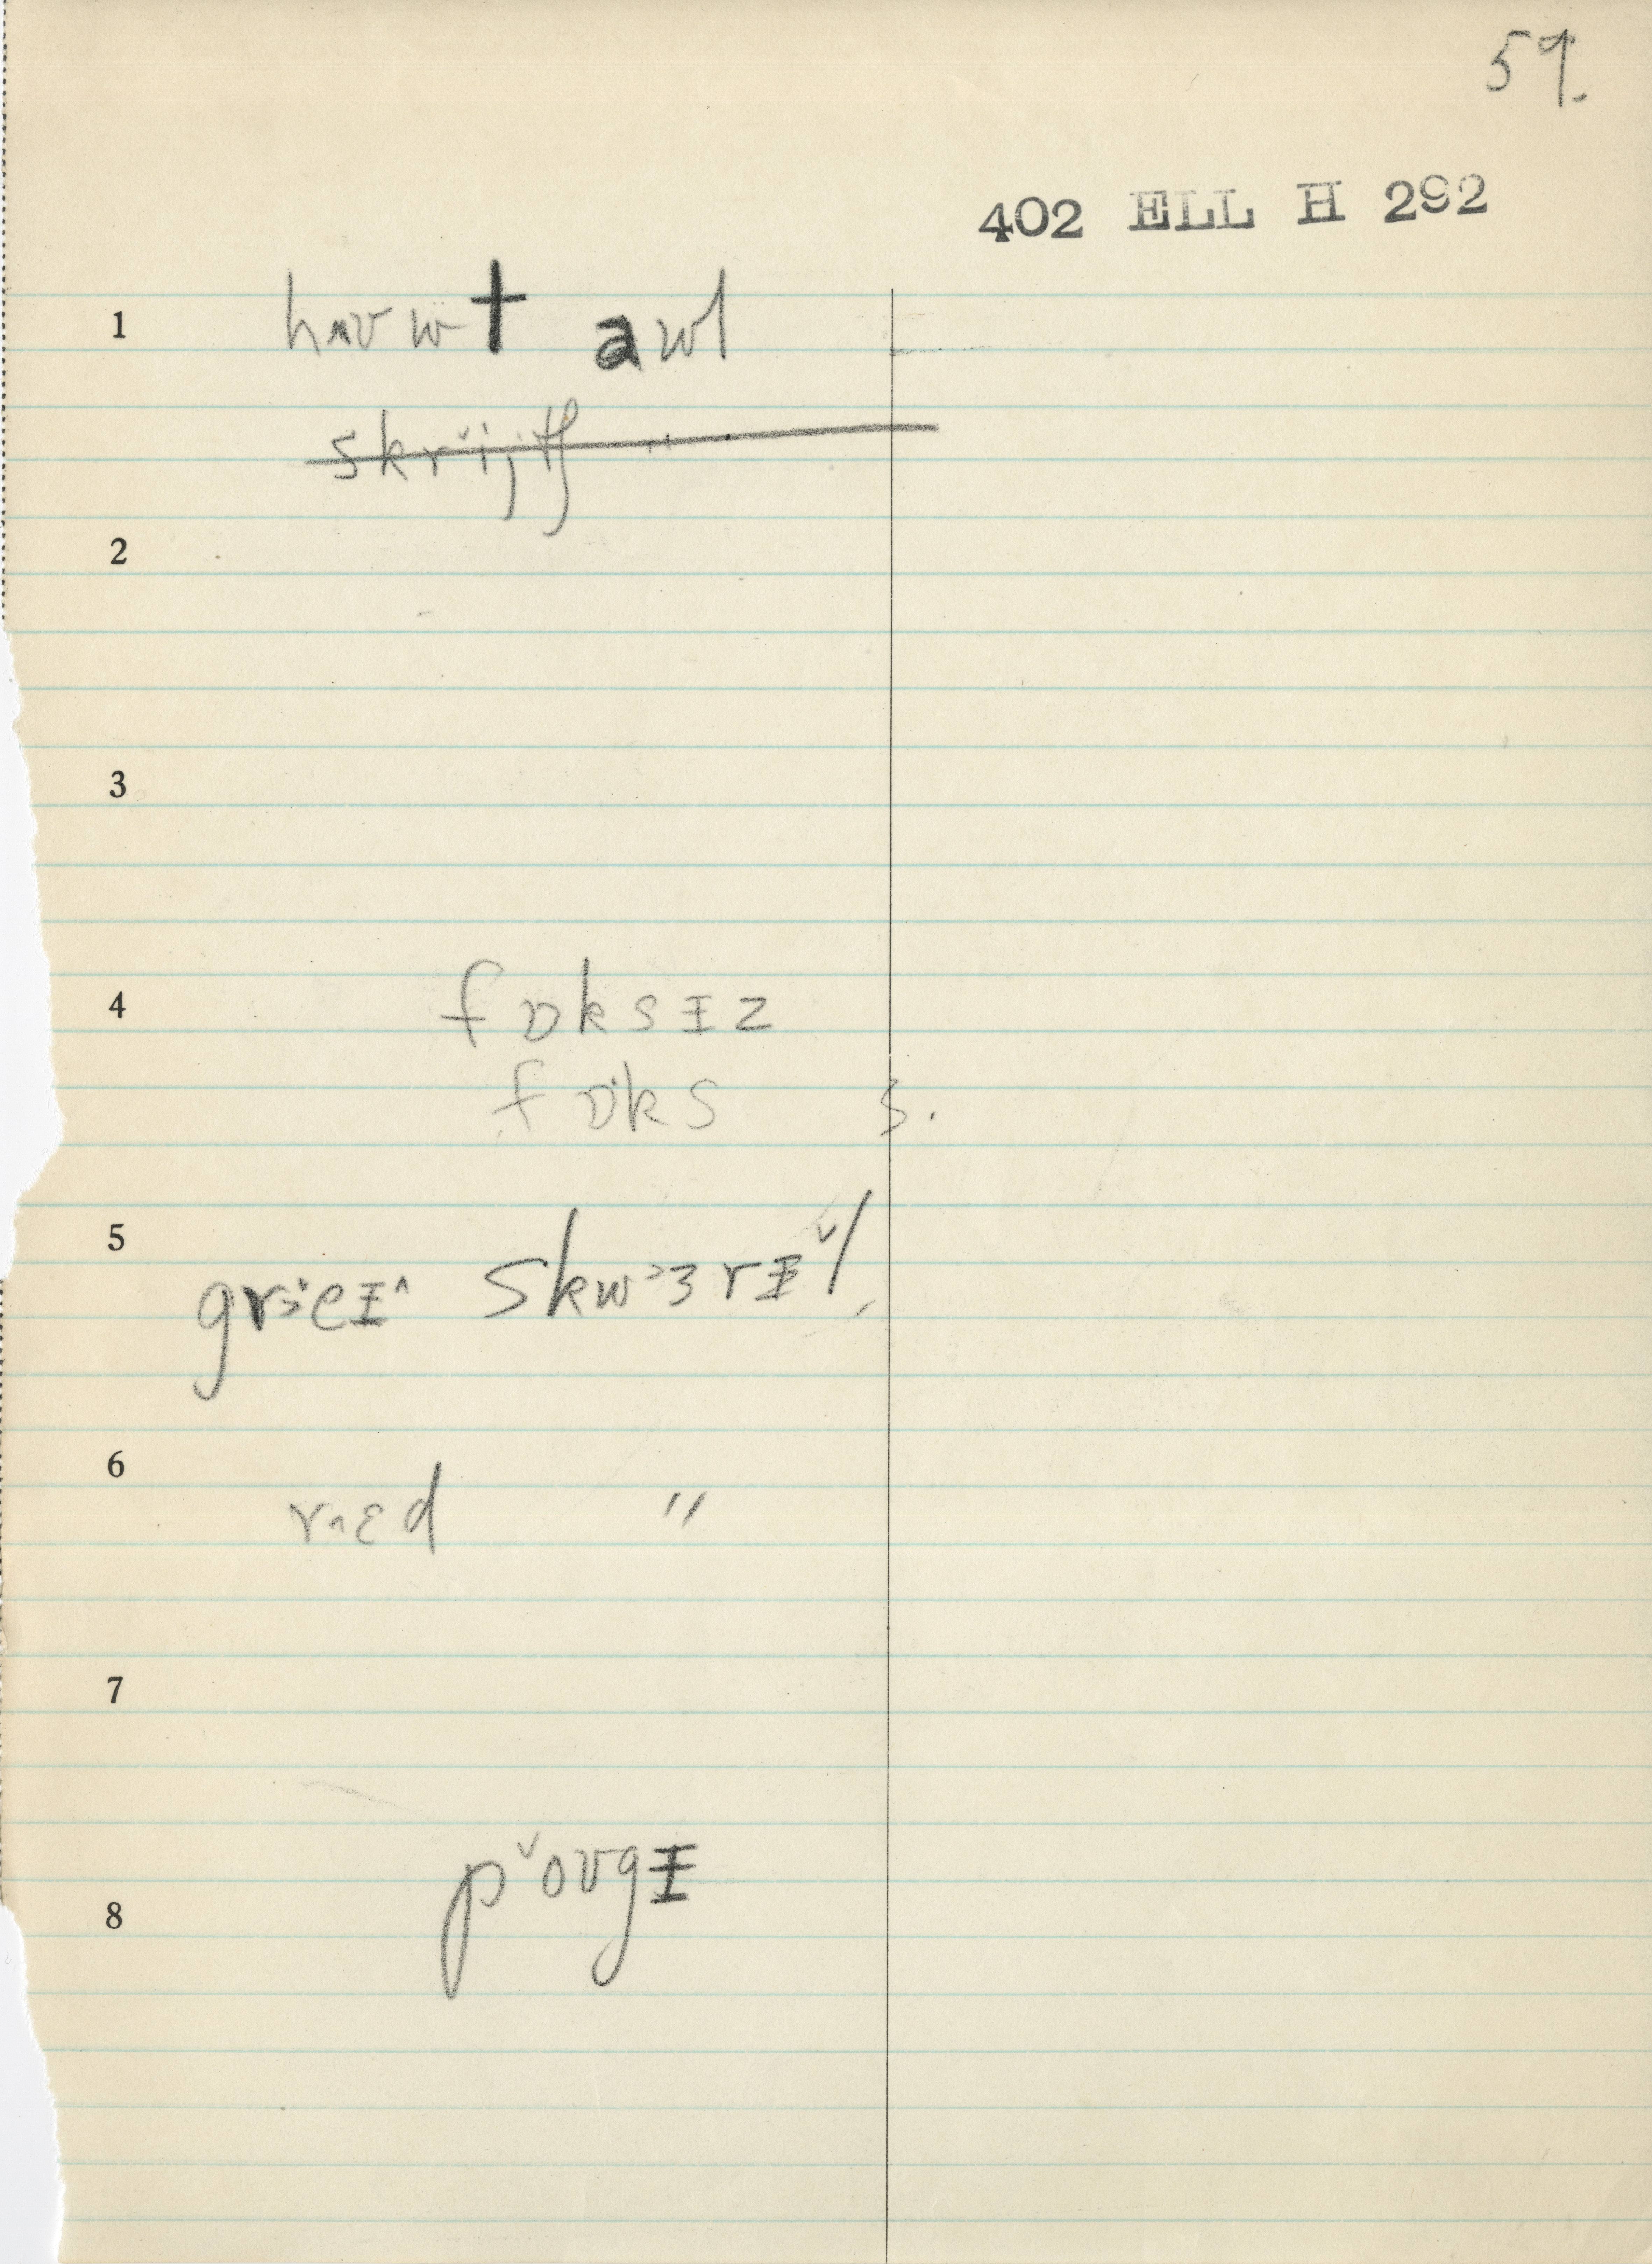 59.
402 ELL H 292
1 hʌʊwt awl
skrijtʃ
2
3
4 fɒksɪz
fɒks 3.
5 grɜˑeɪ^ skwɜrɪˇl
6 r^ɛd "
7
8 pˇoʊgɪ